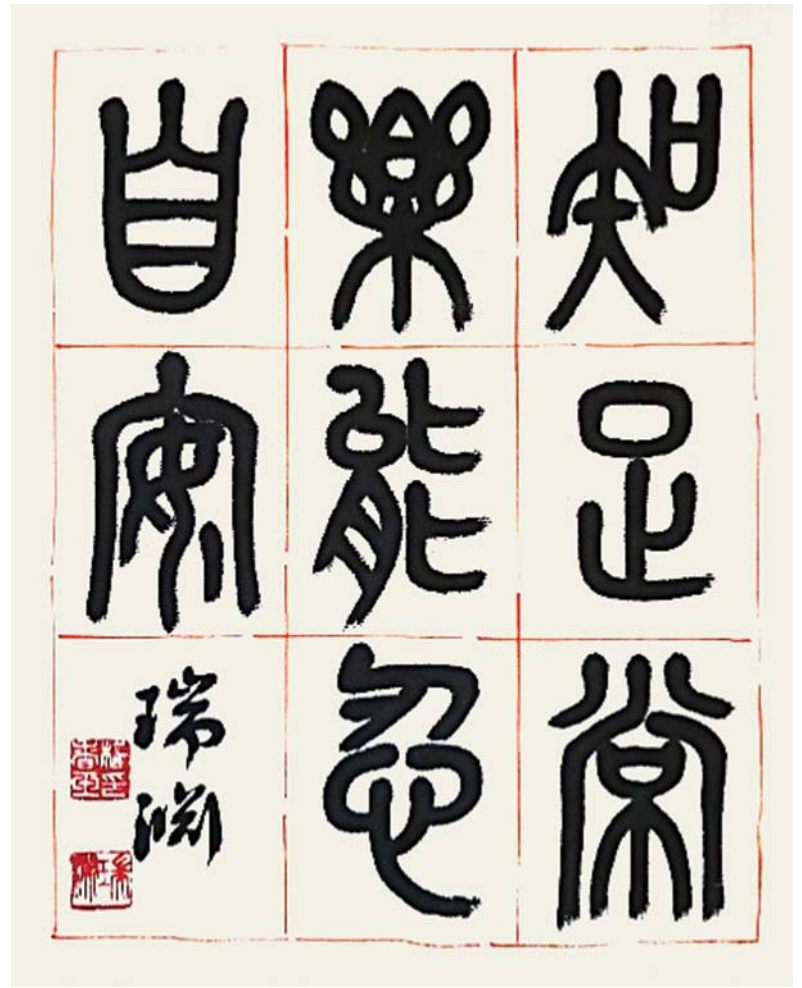 知足常
樂能忍
自安
瑞渊